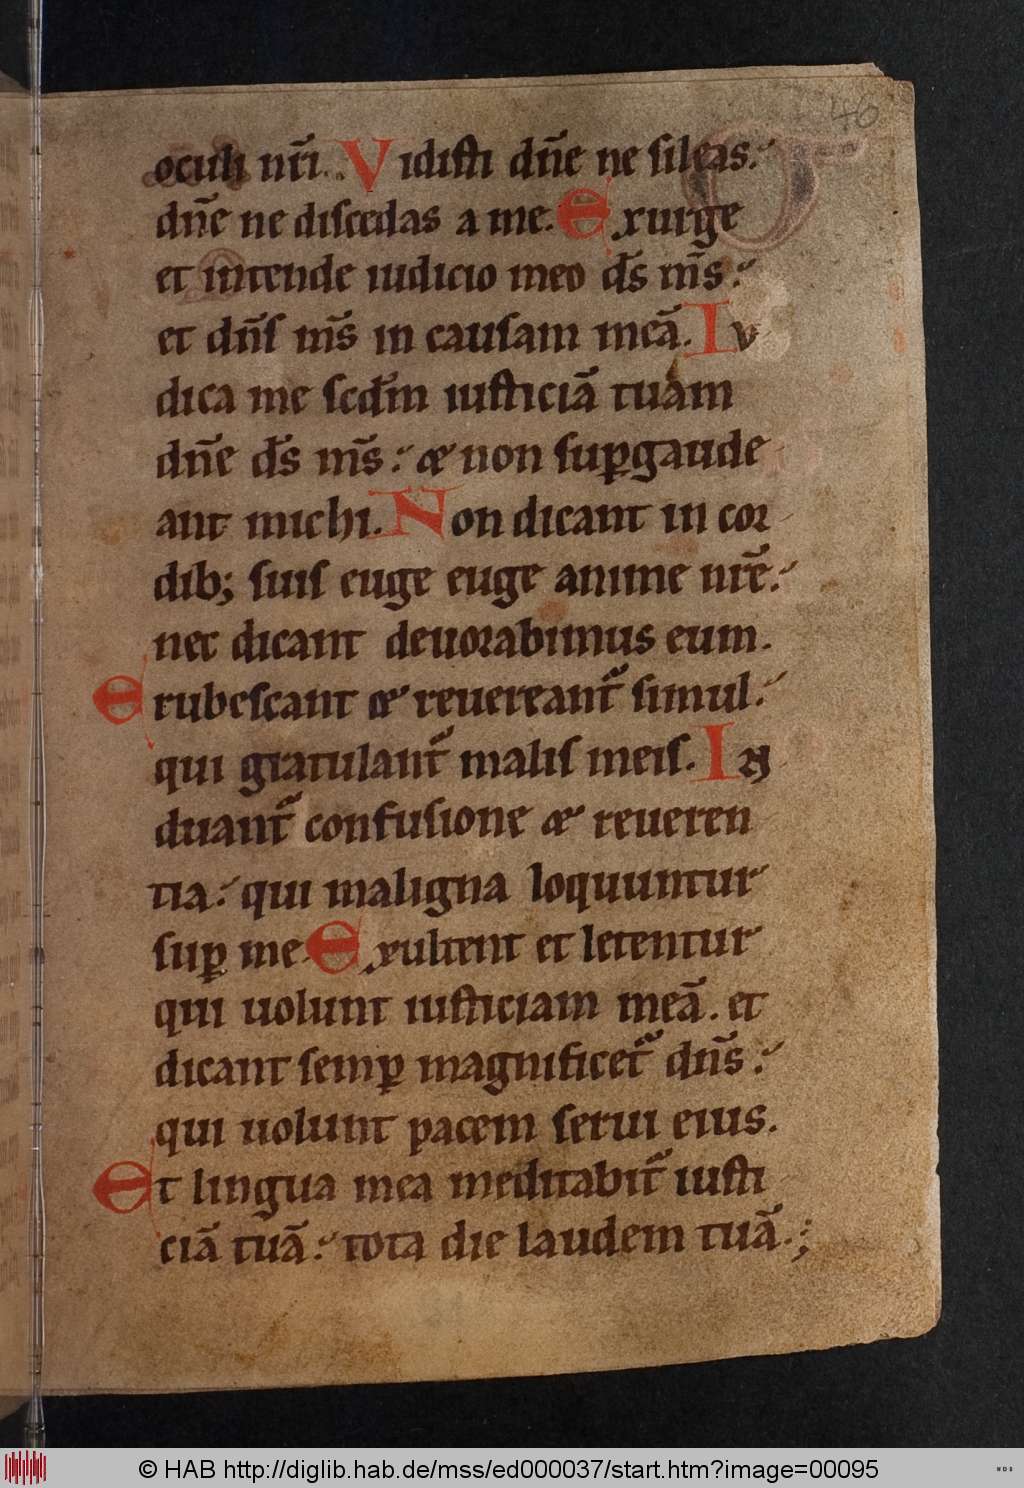 46
oculi nr̄i. Vidisti dn̄e ne sileas:
dn̄e ne discedas a me. Exurge
et intende iudicio meo ds̄ ms̄:
et dn̄s ms̄ in causam meā. Iv
dica me scd̄m iusticiā tuam
dn̄e ds̄ ms̄: æ non suꝑgaude
ant michi. Non dicant in coꝛ
dib; suis euge euge anime nr̄e:
nec dicant deuoꝛabimus eum.
Erubescant æ reuereant᷑ simul:
qui gratulant᷑ malis meis. IN
duant᷑ confusione æ reueren
tia: qui maligna loquuntur
suꝑ me. Exultent et letentur
qui uolunt iusticiam meā. et
dicant semꝑ magnificet᷑ dn̄s:
qui uolunt pacem serui eius.
Et lingua mea meditabit᷑ iusti
ciā tuā: tota die laudem tuā.;
© HAB http://diglib.hab.de/mss/ed000037/start.htm?image=00095